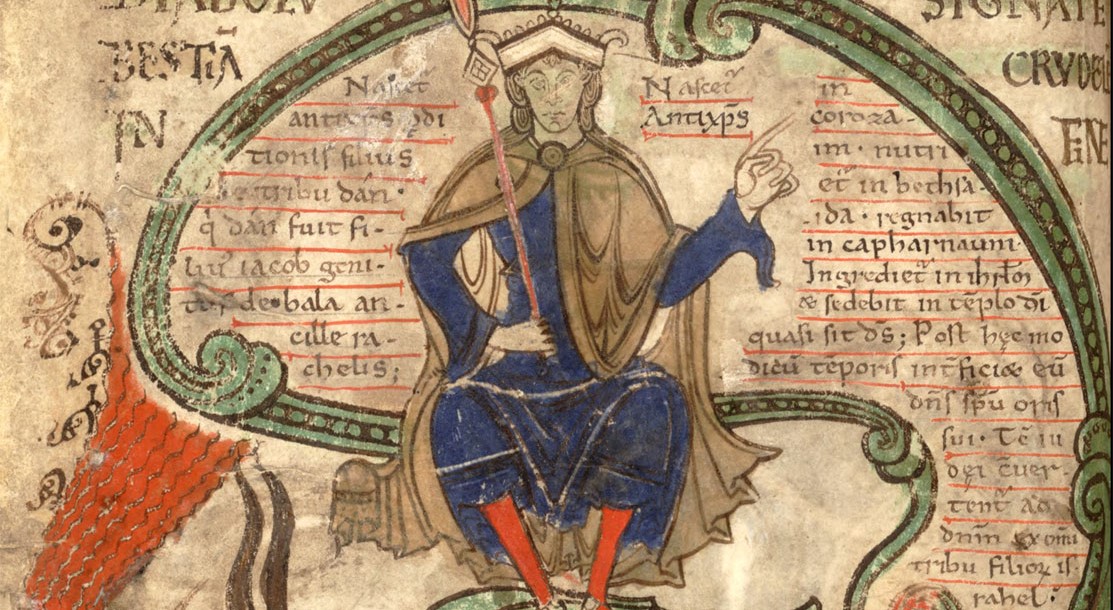 DIABOLU
BESTIA̅
IN
SIGNATE
CRVDEL
Nascet᷑
antix̅p̅s
tionis filius
tribu dan·
q̇ dan fuit fi-
lii᷑ iacob geni-
bala an-
cille ra-
chelis;
Nascet᷑
Antix̅p̅s
in
coroza-
im · nutri
et᷑ in bethsa-
ida · regnabit
in capharnaum·
Ingrediet᷑ in ihrl̅m
& sedebit in te̅plo di̅
quasi sit d̅s; Post hęc mo
dicu̅ te̅poris int̅ficiet eu̅
dn̅s sp̅u oris
sui· Tc̅ iu
dęi c̅uer-
tent᷑ ad
dn̅m ex omi
tribu filioꝝ is-
rahel·